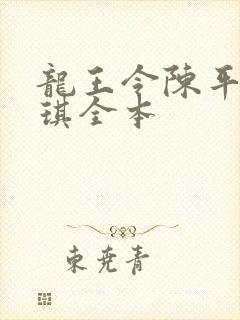 龍王令陳平
琪全本
東堯青